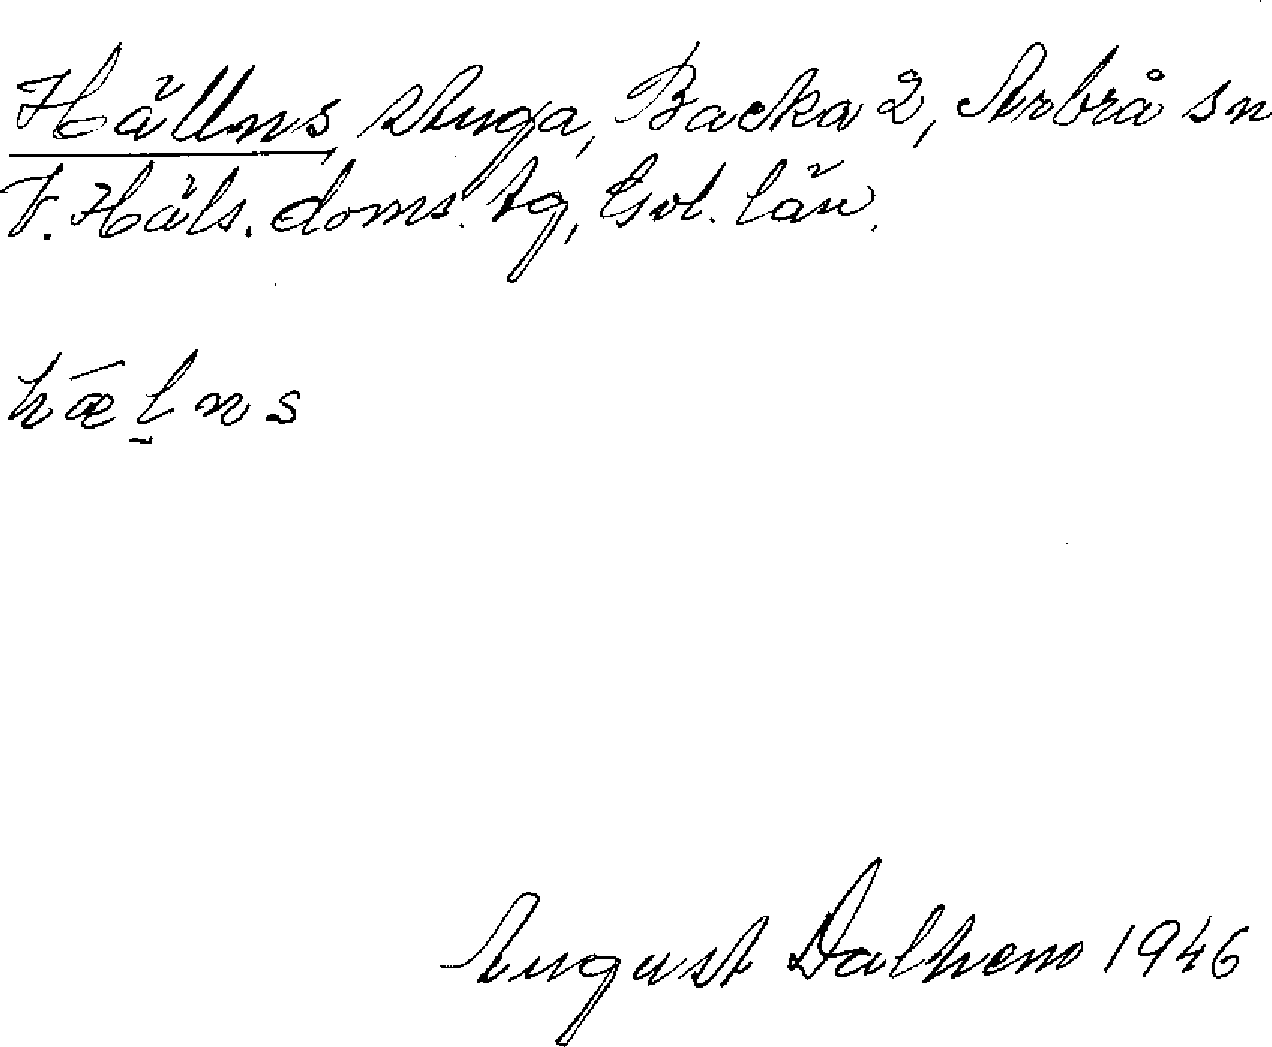 Hällns, stuga, Backa 2, Arbrå sn
V. Häls. doms. tg, Gvl. län.
hǣl̠ns
August Dalhem 1946